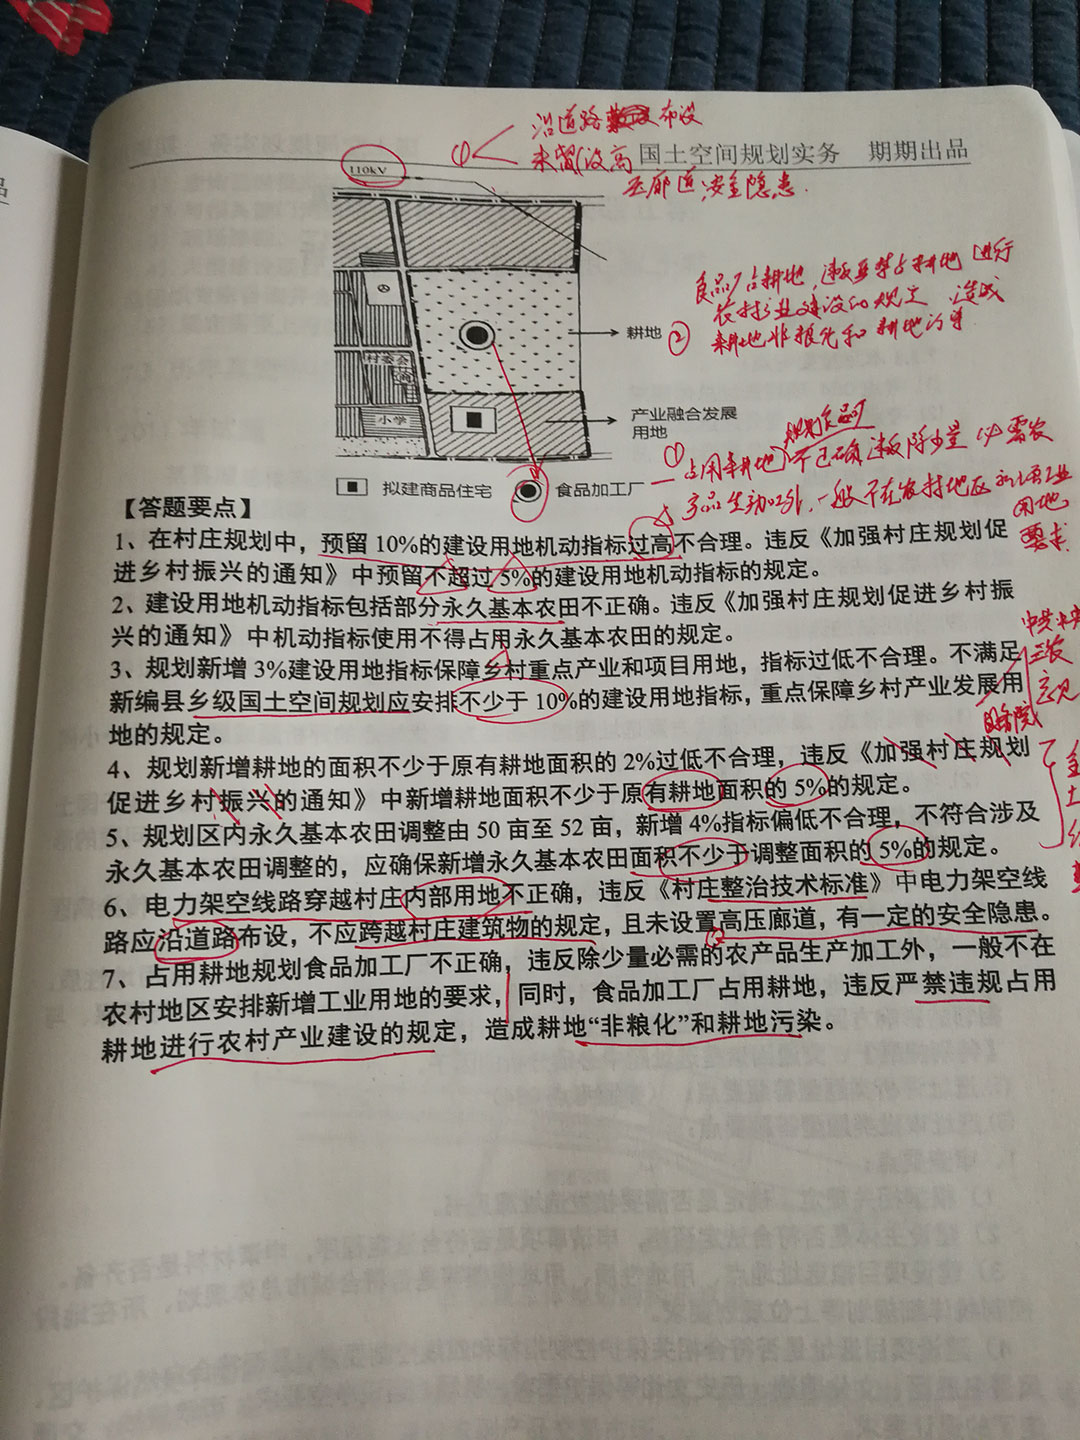 沿道路 布设
国土空间规划实务 期期出品
未留(设)高
压廊道,安全隐患.
110kV
食品厂占耕地,违反严禁占耕地进行
农村产业建设的规定,造成
耕地非粮化和耕地污
耕地 ②
村委会
小学
产业融合发展
用地
① 占用耕地 不正确 违反除少量必需农
产品生产加工外,一般不在农村地区 工业
用地
要求
拟建商品住宅 食品加工厂
【答题要点】
1、在村庄规划中,预留10%的建设用地机动指标过高不合理。违反《加强村庄规划促
进乡村振兴的通知》中预留不超过5%的建设用地机动指标的规定。
2、建设用地机动指标包括部分永久基本农田不正确。违反《加强村庄规划促进乡村振
兴的通知》中机动指标使用不得占用永久基本农田的规定。
3、规划新增3%建设用地指标保障乡村重点产业和项目用地,指标过低不合理。不满足
新编县乡级国土空间规划应安排不少于10%的建设用地指标,重点保障乡村产业发展用
地的规定。
中共中央
国务院
意见
4、规划新增耕地的面积不少于原有耕地面积的2%过低不合理,违反《加强村庄规划
促进乡村振兴的通知》中新增耕地面积不少于原有耕地面积的5%的规定。
5、规划区内永久基本农田调整由50亩至52亩,新增4%指标偏低不合理,不符合涉及
永久基本农田调整的,应确保新增永久基本农田面积不少于调整面积的5%的规定。
6、电力架空线路穿越村庄内部用地不正确,违反《村庄整治技术标准》中电力架空线
路应沿道路布设,不应跨越村庄建筑物的规定,且未设置高压廊道,有一定的安全隐患。
7、占用耕地规划食品加工厂不正确,违反除少量必需的农产品生产加工外,一般不在
农村地区安排新增工业用地的要求,同时,食品加工厂占用耕地,违反严禁违规占用
耕地进行农村产业建设的规定,造成耕地“非粮化”和耕地污染。